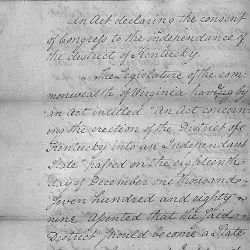 An Act declaring the consent
of Congress to the independance of
the district of Kentucky.
The Legislature of the com-
monwealth of Virginia having by
an Act intitled "An Act concern-
ing the erection of the District of
Kentucky into an Independant
State" passed on the eighteenth
day of December one thousand
seven hundred and eighty
nine Assented that the said
District should become a State